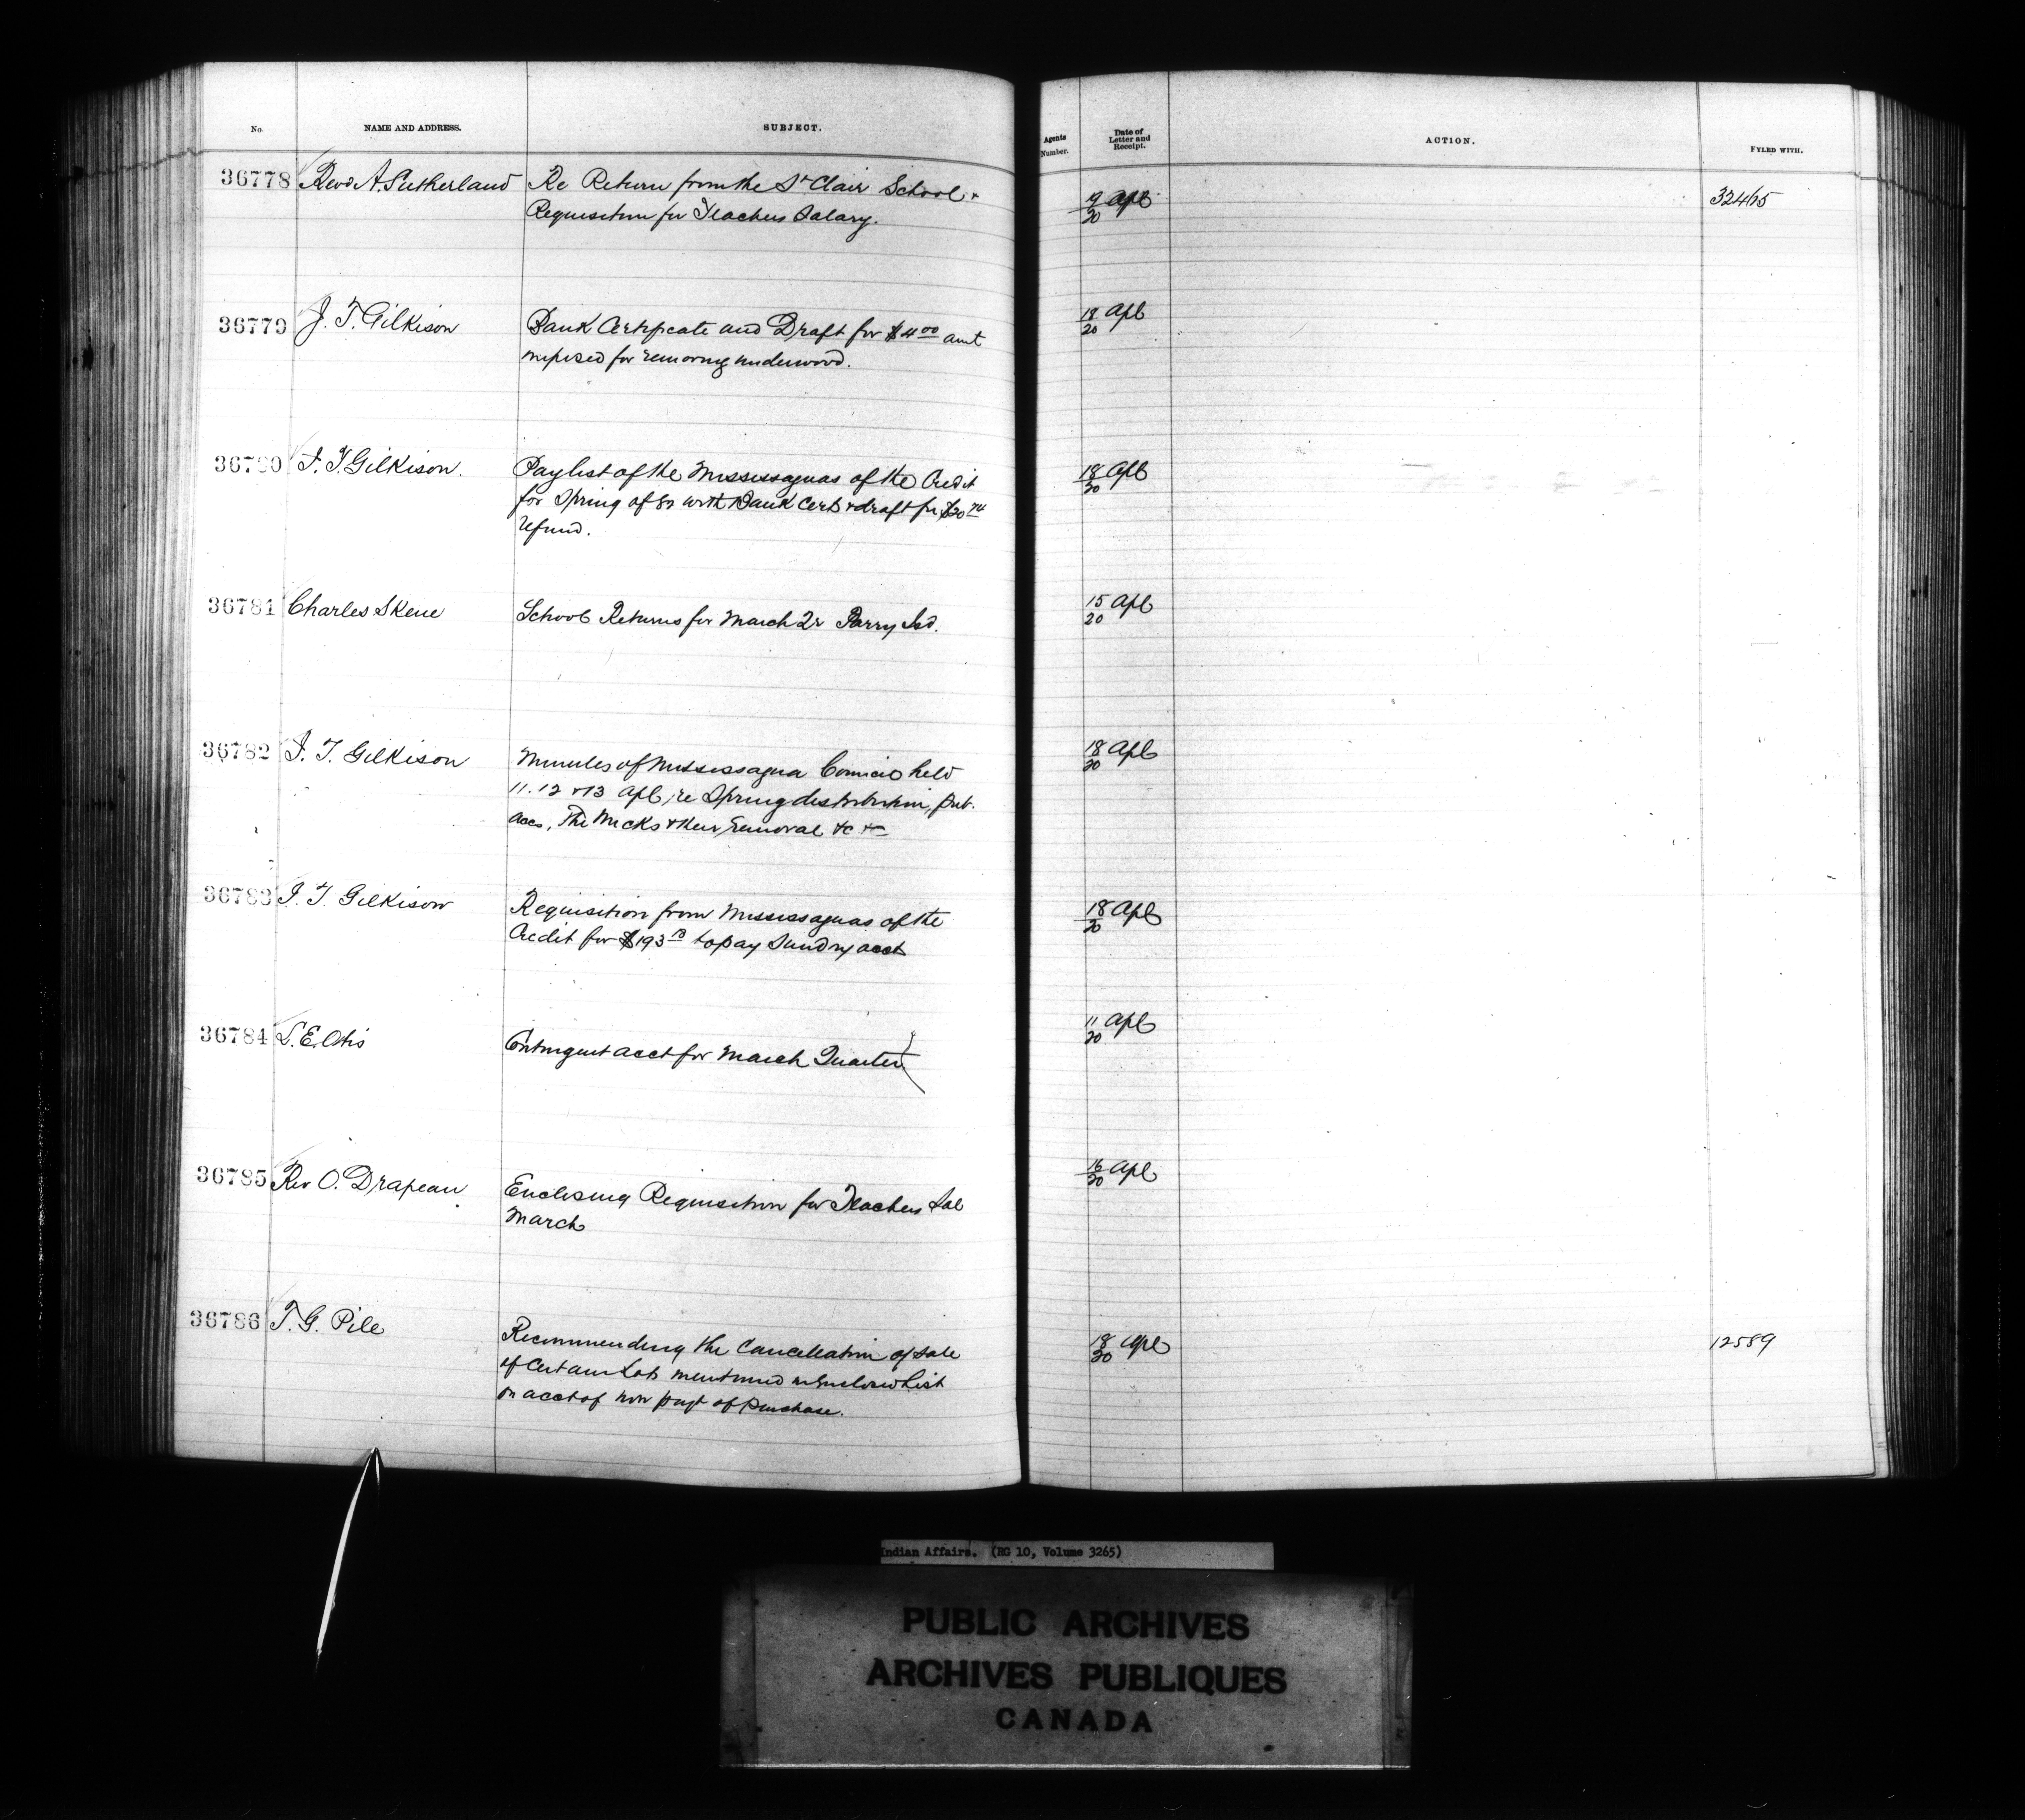 No. NAME AND ADDRESS. SUBJECT. Agents Number. Date of Letter and Receipt. ACTION. FYLED WITH.
36778 Revd A. Sutherland Re Return from the St Clair School & 19 Apl 32465
Requisition for Teachers Salary. 20
36779 J. T. Gilkison Bank Certificate and Draft for $4.00 amt 18 Apl
imposed for removing underwood. 20
36780 J. T. Gilkison. Paylist of the Mississaguas of the Credit 18 Apl
for Spring of 82 with Bank Cert & draft for $20 74 20
refund.
36781 Charles Skene School Returns for March Qr Parry Isd. 15 Apl
20
36782 J. T. Gilkison Minutes of Mississagua Council held 18 Apl
11. 12 & 13 Apl, re Spring distribution, pub. 20
accs, The Micks & their removal &c &c
36783 J. T. Gilkison Requisition from Mississaguas of the 18 Apl
Credit for $193 to pay Sundry acct 20
36784 S. E. Otis Contingent acct for March Quarter 11 Apl
20
36785 Rev O. Drapeau Enclosing Requisition for Teachers Sal 16 Apl
March 20
36786 T. G. Pile Recommending the Cancellation of sale 18 Apl 12589
of Certain Lots mentioned in Enclosed list 20
on acct of non payt of purchase.
Indian Affairs. (RG 10, Volume 3265)
PUBLIC ARCHIVES
ARCHIVES PUBLIQUES
CANADA